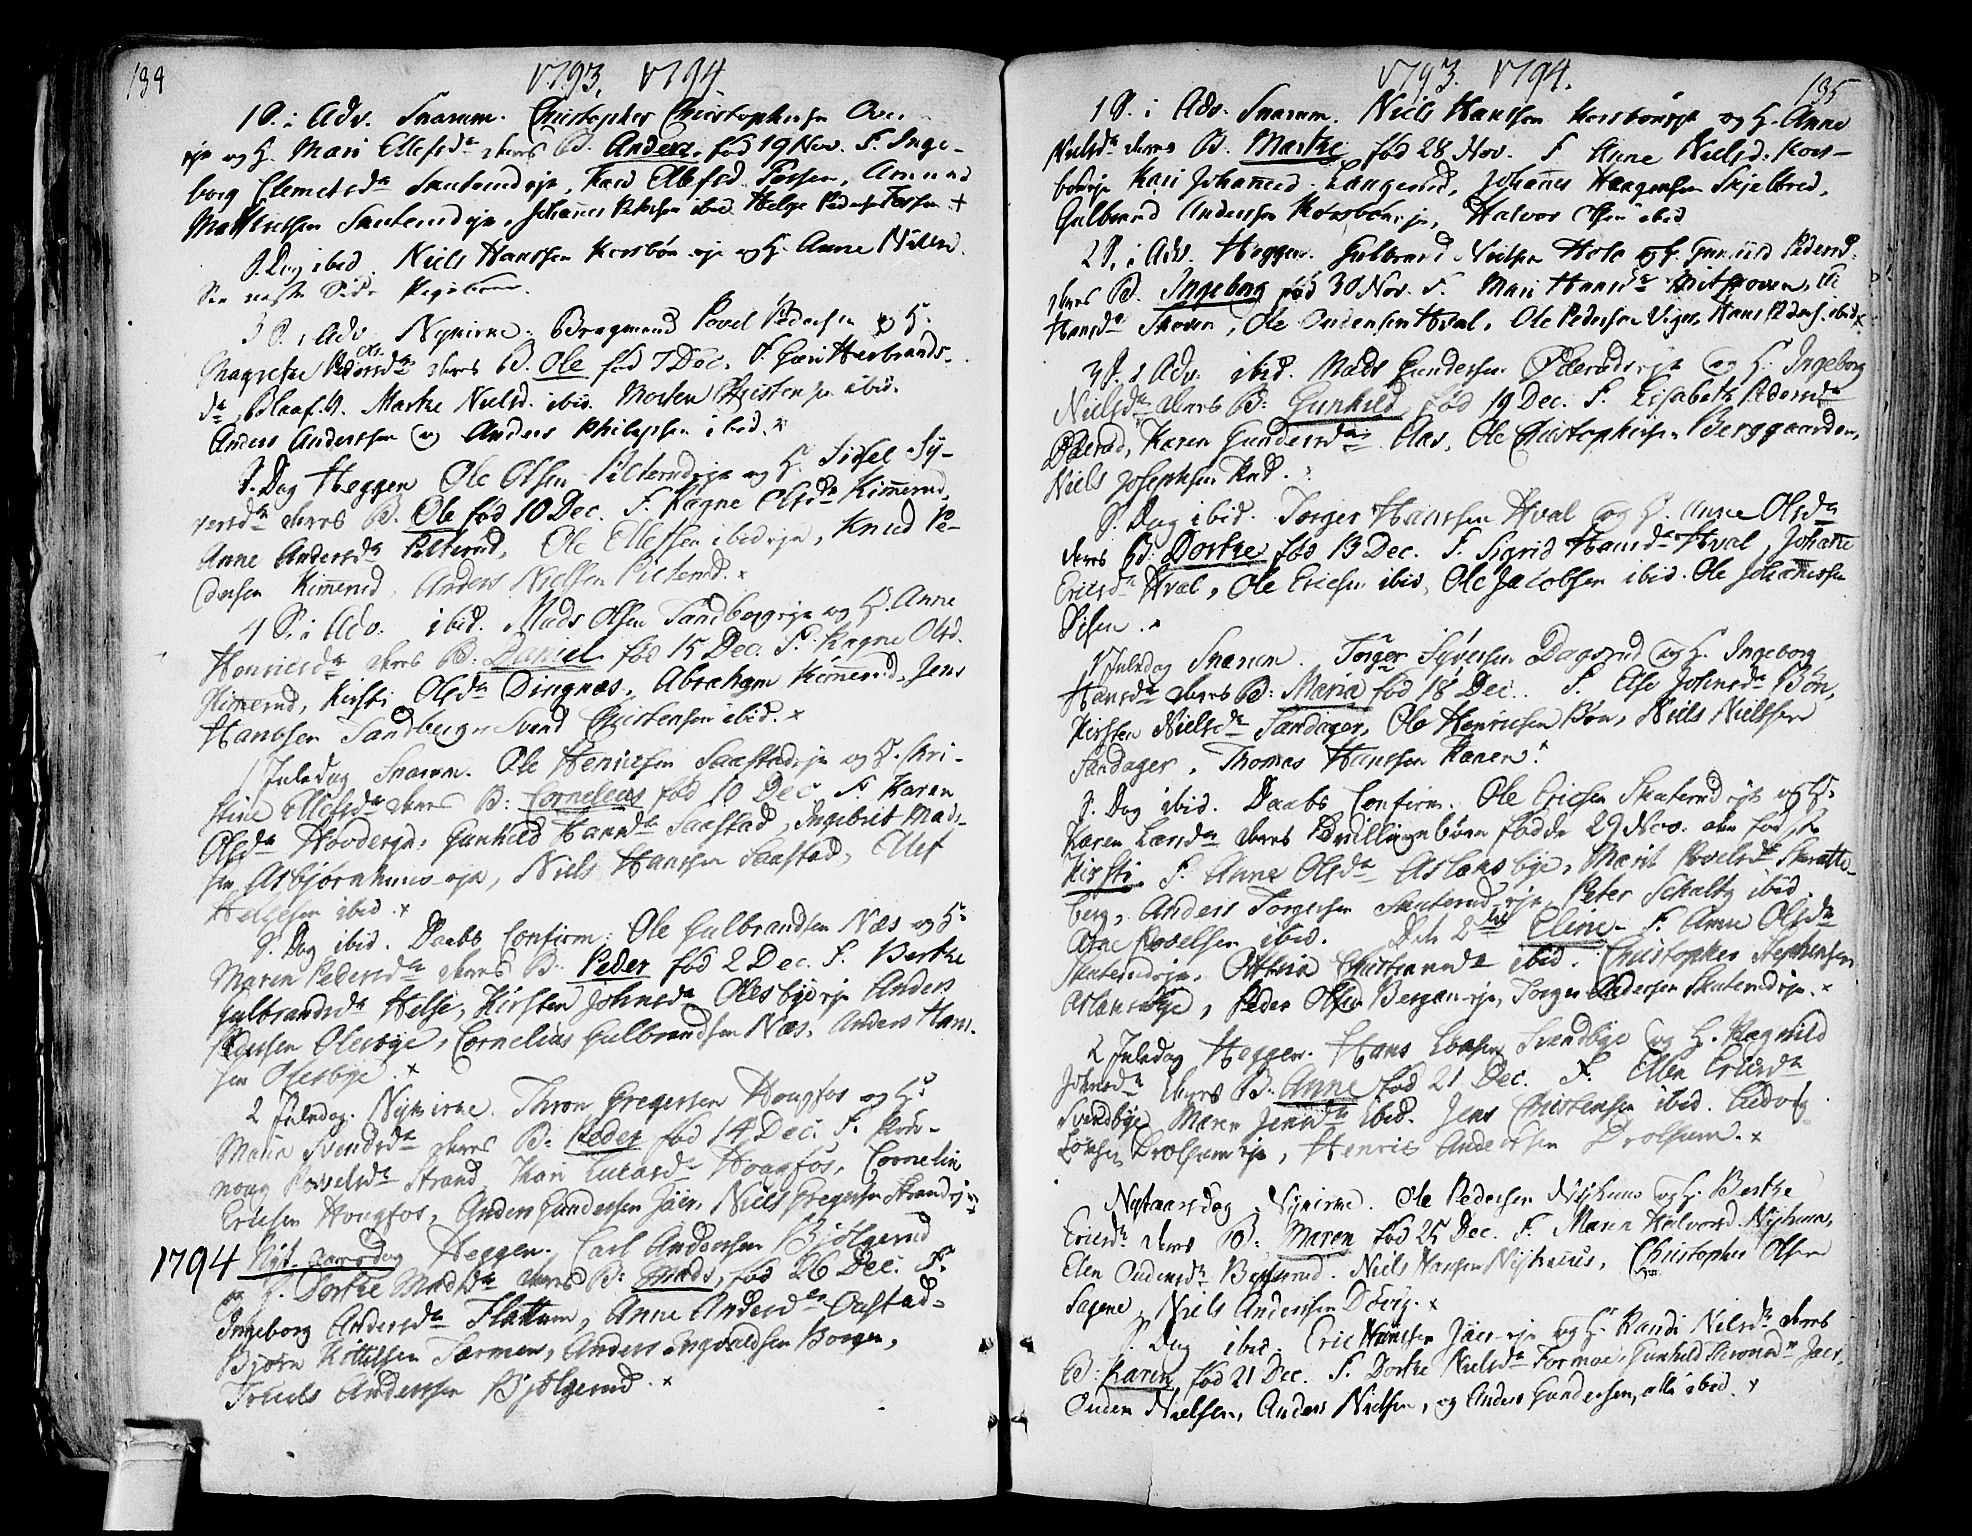 134
1793, 1794.
1 S. i Adv. Snarum. Christopher Christophersen
eje og H. Mari Ellefsdr. deres B. Anders, fød 19 Nov. F. Inge-
borg Clemetsdr. Skuterudeje, Kari Ellefsd. Fossen, Amund
Skuterudeje, Johannes Pedersen ibid. Helge Pedersen Fossen +
S. Dag ibid. Niels Hanssen Korsbøn eje og H. Anne Nilsd.
See næste Side
3 S. i Adv. Nykirke. Bragmand Povel Pedersen og H.
Magrethe Pedersdr. deres B. Ole fød 7 Dec. F. Guri Herbrands-
dr. Blaaf. V. Marthe Nielsd. ibid. Morten Christensen ibid.
Anders Anderssen og Anders Philipsen ibid. x
S. Dag Heggen Ole Olsen Pilterudeje og H. Sidsel Sy-
versdr. deres B. Ole fød 10 Dec. F. Ragne Olsdr. Kimerud,
Anne Andersdr. Pilterud, Ole Ellefsen ibid eje, Knud Pe-
dersen Kimerud, Anders Nielsen Pilterud. x
4 S. i Adv. ibid. Mads Olsen Sandbergeje og H. Anne
Henricsdr. deres B. Daniel fød 15 Dec. F. Ragne Olsd.
Kimerud, Kirsti Olsdr. Dingnæs, Abraham Kimerud, Jens
Hansen Sandberg, Svend Christensen ibid. x
1 Juledag Snarum. Ole Henricsen Saastadeje og H. Kri-
stine Ellefsdr. deres B: Cornelius fød 10 Dec F. Karen
Olsdr. Hovdeeje, Gunhild Hansdr. Saastad, Ingebret Mads-
sen Asbjørnhuus-eje, Niels Hanssen Saastad, Ellef
Helgesen ibid. x
S. Dag ibid. Daabs Confirm: Ole Gulbrandsen Næs og H:
Maren Pedersdr. deres B. Peder fød 2 Dec. F. Berthe
Gulbrandsdr. Helse, Kirsten Johnsdr. Olesbyeeje Anders
Pedersen Olesbye, Cornelius Gulbrandsen Næs, Anders Hans-
sen Olesbye. x
2 Juledag. Nykirke. Thron Gregersen Hougfos og H:
Maria Svendsdr. deres B: Peder fød 14 Dec. F. Røn-
noug Povelsdr. Strand, Kari Larsdr. Hougfos, Cornelius
Ericsen Hougfos, Anders Gundersen Jaer, Niels Gregersen Strandeje
1794 Nyt-aarsdag Heggen. Carl Andersen Bjølgerud
og H. Dorthe Madsdr. deres B: Mads, fød 26 Dec. F.
Ingeborg Andersdr. Flattum, Anne Andersdr. Opstad,
Bjørn Kittelsen Tormoen, Anders Engvaldsen Borgen,
Truels Anderssen Bjølgerud. x
135
1793. 1794.
1 S. i Adv. Snarum. Niels Hanssen Korsbøneje og H. Anne
Nielsdr. deres B. Marthe fød 28 Nov. F. Anne Nielsd. Kors-
bøneje Kari Johannesd. Langerud, Johannes Haagensen Skjelbred,
Gulbrand Anderssen Korsbøneje, Halvor Olsen ibid
2 S. i Adv. Heggen. Gulbrand Nielsen Hole og H. Gunnild Pedersd.
deres B. Ingeborg fød 30 Nov. F. Mari Hansdr.
Hansdr. Skoven, Ole Oudensen Hval, Ole Pedersen Viger, Hans Pedersen ibid x
3 S. i Adv. ibid. Mads Gundersen Ødeerudseje og H. Ingeborg
Nielsdr. deres B: Gunhild, fød 19 Dec. F. Elisabeth Pedersdr.
Øderud, Karen Gundersdr. Aas, Ole Christophersen Berggaarden,
Niels Josephsen Rud.
S. Dag ibid. Torger Hanssen Hval og H. Anne Olsdr.
deres B: Dorthe fød 13 Dec. F. Sigrid Hansdr. Hval, Johanne
Ericsdr. Hval, Ole Ericsen ibid, Ole Jacobsen ibid. Ole Johannessen
Disen. x
1 Juledag Snarum. Torger Syversen Dagsrud og H. Ingeborg
Hansdr. deres B: Maria fød 18 Dec. F. Else Johnsdr. Bøn,
Kirsten Nielsdr. Sandager, Ole Henricsen Bøn, Niels Nielssen
Sandager, Thomas Hanssen Karen.
S. Dag ibid. Daabs Confirm. Ole Ericsen Skuterudeje og H:
Karen Larsdr. deres Tvillingebørn fødde 29 Nov. den første
Kirsti. F. Anne Olsdr. Aslaksbye, Marit Povelsdr. Skratte-
berg, Anders Torgersen Skuterudeje, Peter Schalty ibid.
Arne Povelsen ibid. Den 2den Eline. F. Anne Olsdr.
Skuterudeje, Ottilia Christiansdr. ibid. Christopher Stephensen
Aslaksbye, Peder Olsen Bergan-eje, Torger Andersen Skuterudeje. x
2 Juledag Heggen. Hans Larsen Svendbye og H. Ragnild
Johnsdr. deres B. Anne fød 21 Dec. F. Ellen Ericsdr.
Svendbye Maren Jensdr. ibid. Jens Christensen ibid. Ludvig
Larsen Drolsumeje, Henric Andersen Drolsum. x
Nytaarsdag Nykirke. Ole Pedersen Nyhuus og H. Berthe
Ericsdr. deres B: Maren fød 25 Dec. F. Maren Halvorsd. Nyhuus,
Elen Oudensdr. Bejserud. Niels Hansen Nyhuus, Christopher Olsen
Sagene, Niels Andersen Døvig. x
S. Dag ibid. Eric Hanssen Jaer-eje og H. Randi Nilsdr. deres
B: Karen, fød 21 Dec. F. Dorthe Nielsdr. Formoe, Gunhild Thronsdr. Jaer,
Ouden Nielsen, Anders Nielsen, og Anders Gundersen, alle ibid. x